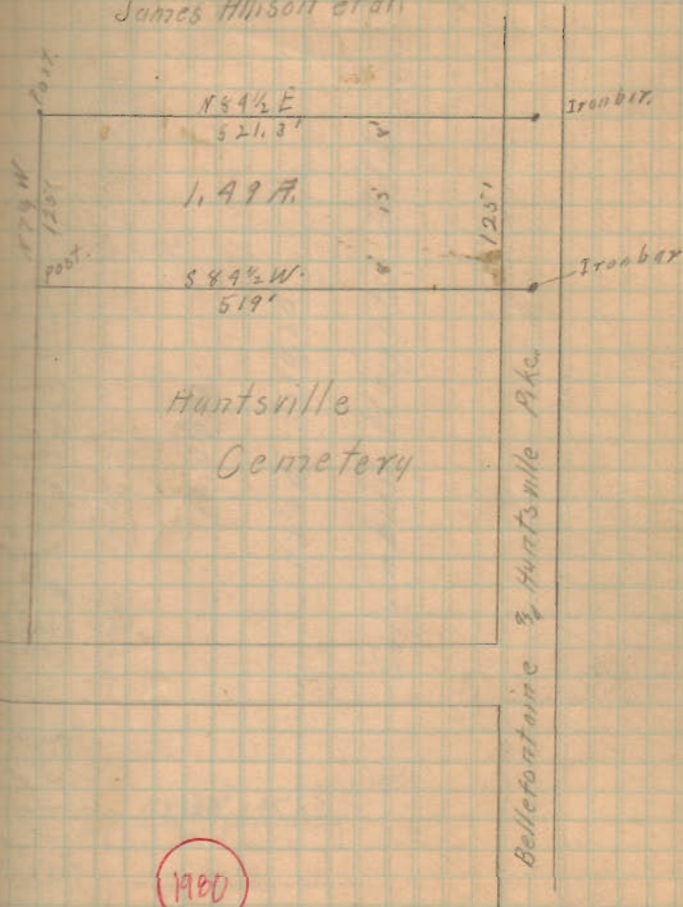 James Allison et al.
Post.
N 84½ E
521.3'
Iron bar.
1.49 A.
8'
15'
8'
125'
125'
Post.
S 84½ W.
519'
Iron bar
Huntsville
Cemetery
Bellefontaine & Huntsville Pike.
1980